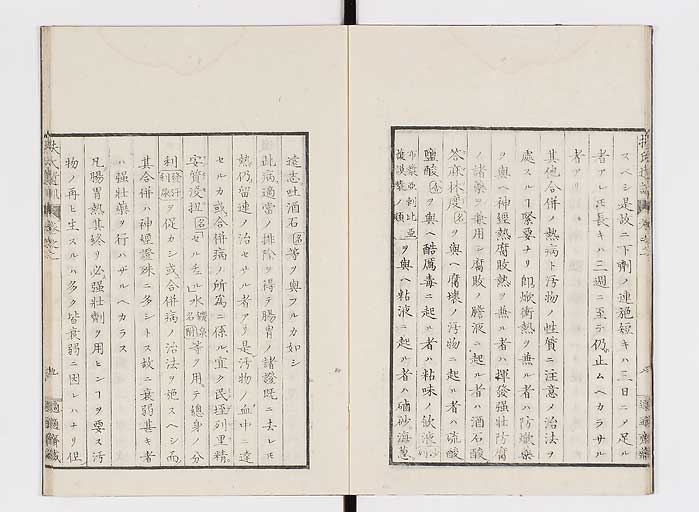 スベシ是故ニ下劑ノ連施短キハ三日ニメ足ル
者アレ𪜈長キハ三週ニ至テ仍止ムヘカラサル
者アリ
其他合併ノ熱病ト汚物ノ性質ニ注意ノ治法ヲ
處スルヿ緊要ナリ即焮衝熱ヲ兼ル者ハ防焮藥
ヲ與ヘ神經熱腐敗熱ヲ兼ル者ハ揮發強壯防腐
ノ諸藥ヲ兼用シ腐敗ノ膽液ニ起ル者ハ酒石酸
答麻林度名ヲ與ヘ腐壊ノ汚物ニ起ル者ハ硫酸
鹽酸名ヲ與ヘ酷厲毒ニ起ル者ハ粘味ノ飲液
亞剌比亞
ノ類ヲ與ヘ粘液ニ起ル者ハ硇砂海葱
遠志吐酒石名等ヲ與フルカ如シ
此病適當ノ排除ヲ得テ腸胃ノ諸證既ニ去レ𪜈
熱仍留連ノ治セサル者アリ是汚物ノ血中ニ達
セルカ或合併病ノ所爲ニ係ル宜ク民垤列里精
安質没扭名セルチェル水名礦泉等ヲ用テ總身ノ分
利發汗利尿ヲ促カシ或合併病ノ治法ヲ施スヘシ而
其合併ハ神經證殊ニ多シトス故ニ衰弱甚キ者
ハ強壯藥ヲ行ハザルヘカラス
凡腸胃熱其終リ必強壯劑ヲ用ヒンヿヲ要ス汚
物ノ再ヒ生スルハ多ク皆衰弱ニ因レハナリ但
扶氏遺訓
適適齋藏